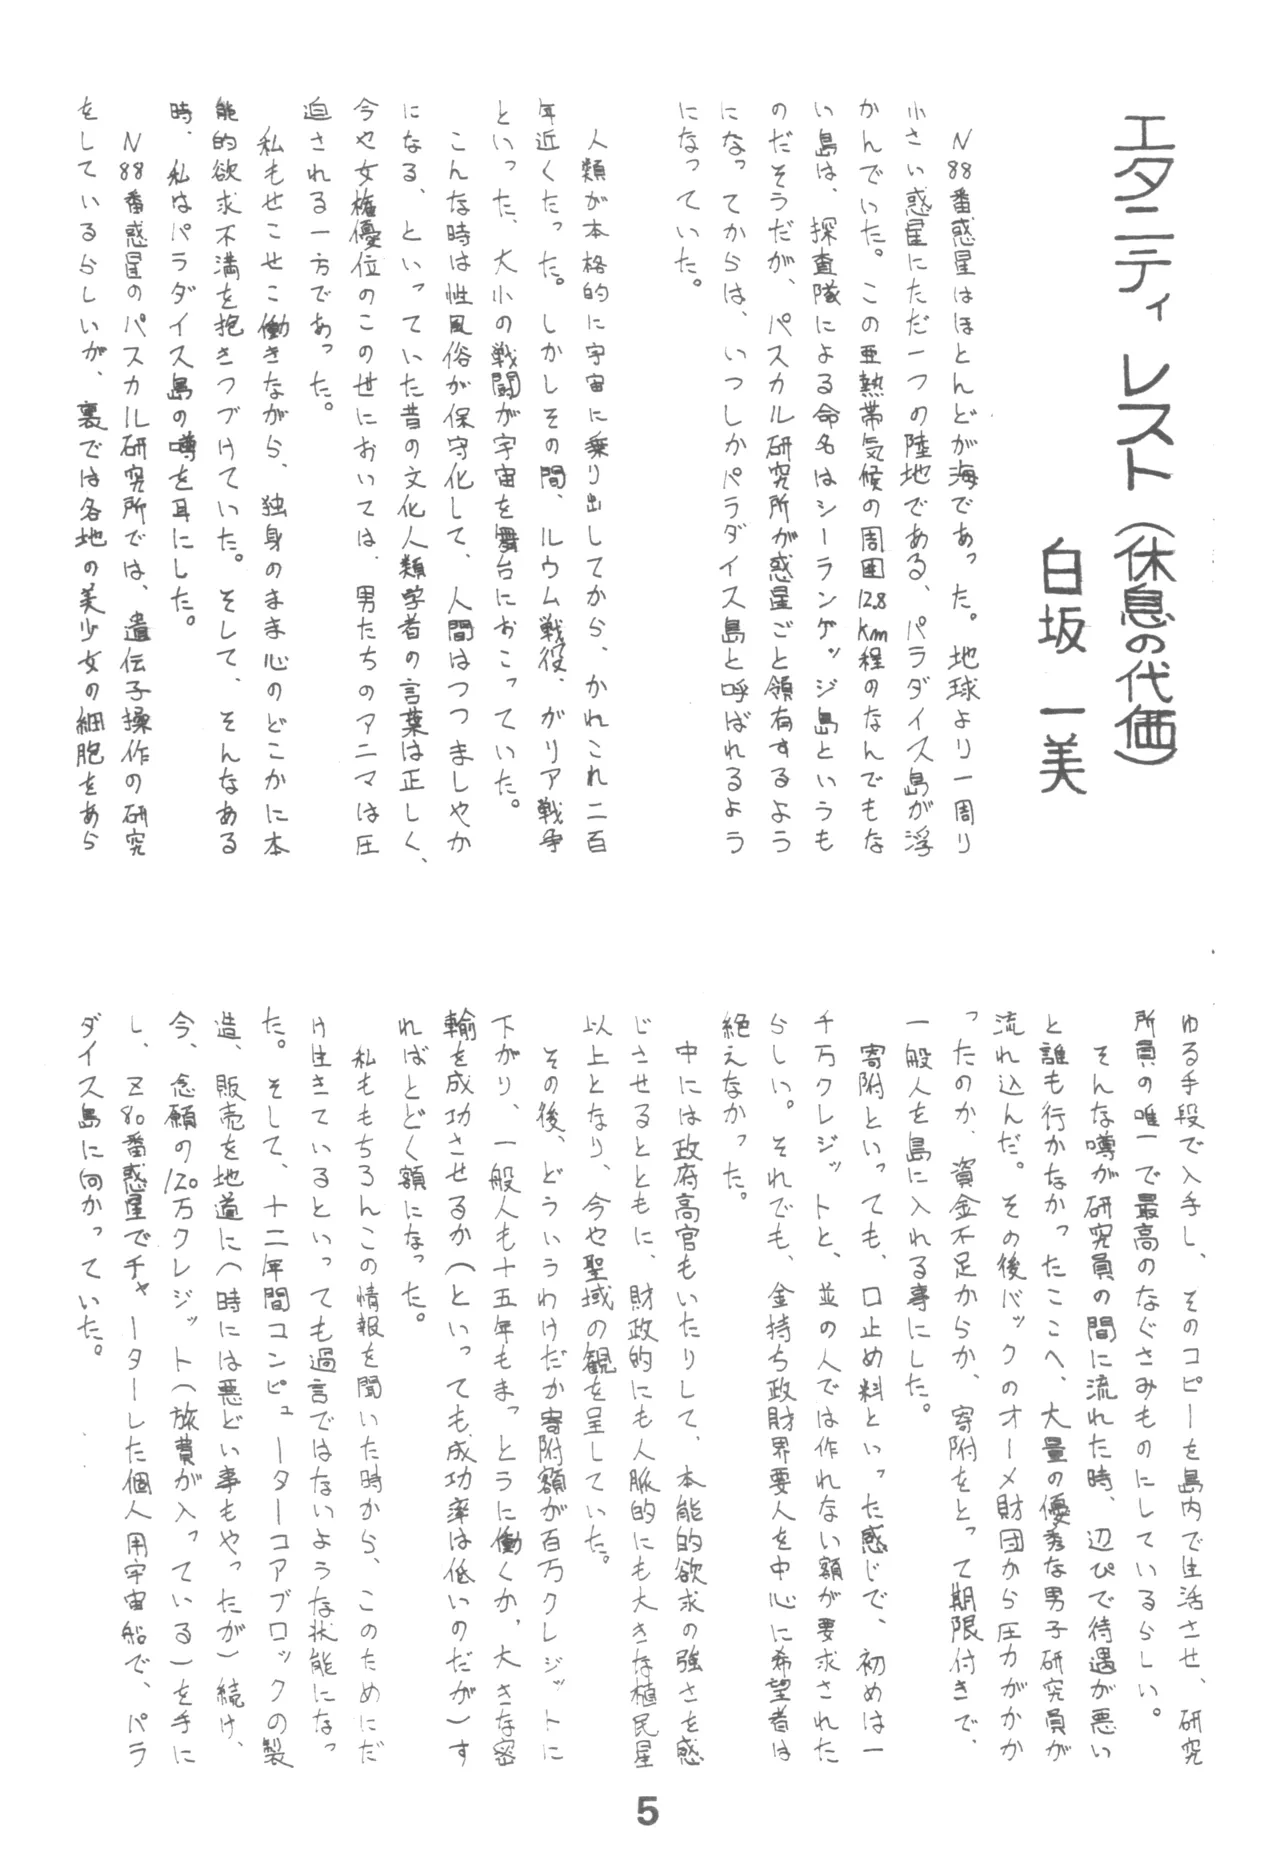 エタニティ レスト(休息の代価)
白坂 一美
N88番惑星はほとんどが海であった。地球より一周り
小さい惑星にただ一つの陸地である、パラダイス島が浮
かんでいた。この亜熱帯気候の周囲12.8km程のなんでもな
い島は、探査隊による命名はシーランゲッジ島というも
のだそうだが、パスカル研究所が惑星ごと領有するよう
になってからは、いつしかパラダイス島と呼ばれるよう
になっていた。
人類が本格的に宇宙に乗り出してから、かれこれ二百
年近くたった。しかしその間、ルウム戦役、ガリア戦争
といった、大小の戦闘が宇宙を舞台におこっていた。
こんな時は性風俗が保守化して、人間はつつましやか
になる、といっていた昔の文化人類学者の言葉は正しく、
今や女権優位のこの世においては、男たちのアニマは圧
迫される一方であった。
私もせこせこ働きながら、独身のまま心のどこかに本
能的欲求不満を抱きつづけていた。そして、そんなある
時、私はパラダイス島の噂を耳にした。
N88番惑星のパスカル研究所では、遺伝子操作の研究
をしているらしいが、裏では各地の美少女の細胞をあら
ゆる手段で入手し、そのコピーを島内で生活させ、研究
所員の唯一で最高のなぐさみものにしているらしい。
そんな噂が研究員の間に流れた時、辺ぴで待遇が悪い
と誰も行かなかったここへ、大量の優秀な男子研究員が
流れ込んだ。その後バックのオーメ財団から圧力がかか
ったのか、資金不足からか、寄附をとって期限付きで、
一般人を島に入れる事にした。
寄附といっても、口止め料といった感じで、初めは一
千万クレジットと、並の人では作れない額が要求された
らしい。それでも、金持ち政財界要人を中心に希望者は
絶えなかった。
中には政府高官もいたりして、本能的欲求の強さを感
じさせるとともに、財政的にも人脈的にも大きな植民星
以上となり、今や聖域の観を呈していた。
その後、どういうわけだか寄附額が百万クレジットに
下がり、一般人も十五年もまっとうに働くか、大きな密
輸を成功させるか(といっても成功率は低いのだが)す
ればとどく額になった。
私ももちろんこの情報を聞いた時から、このためにだ
け生きているといっても過言ではないような状態になっ
た。そして、十二年間コンピューターコアブロックの製
造、販売を地道に(時には悪どい事もやったが)続け、
今、念願の120万クレジット(旅費が入っている)を手に
し、Z80番惑星でチャーターした個人用宇宙船で、パラ
ダイス島に向かっていた。
5